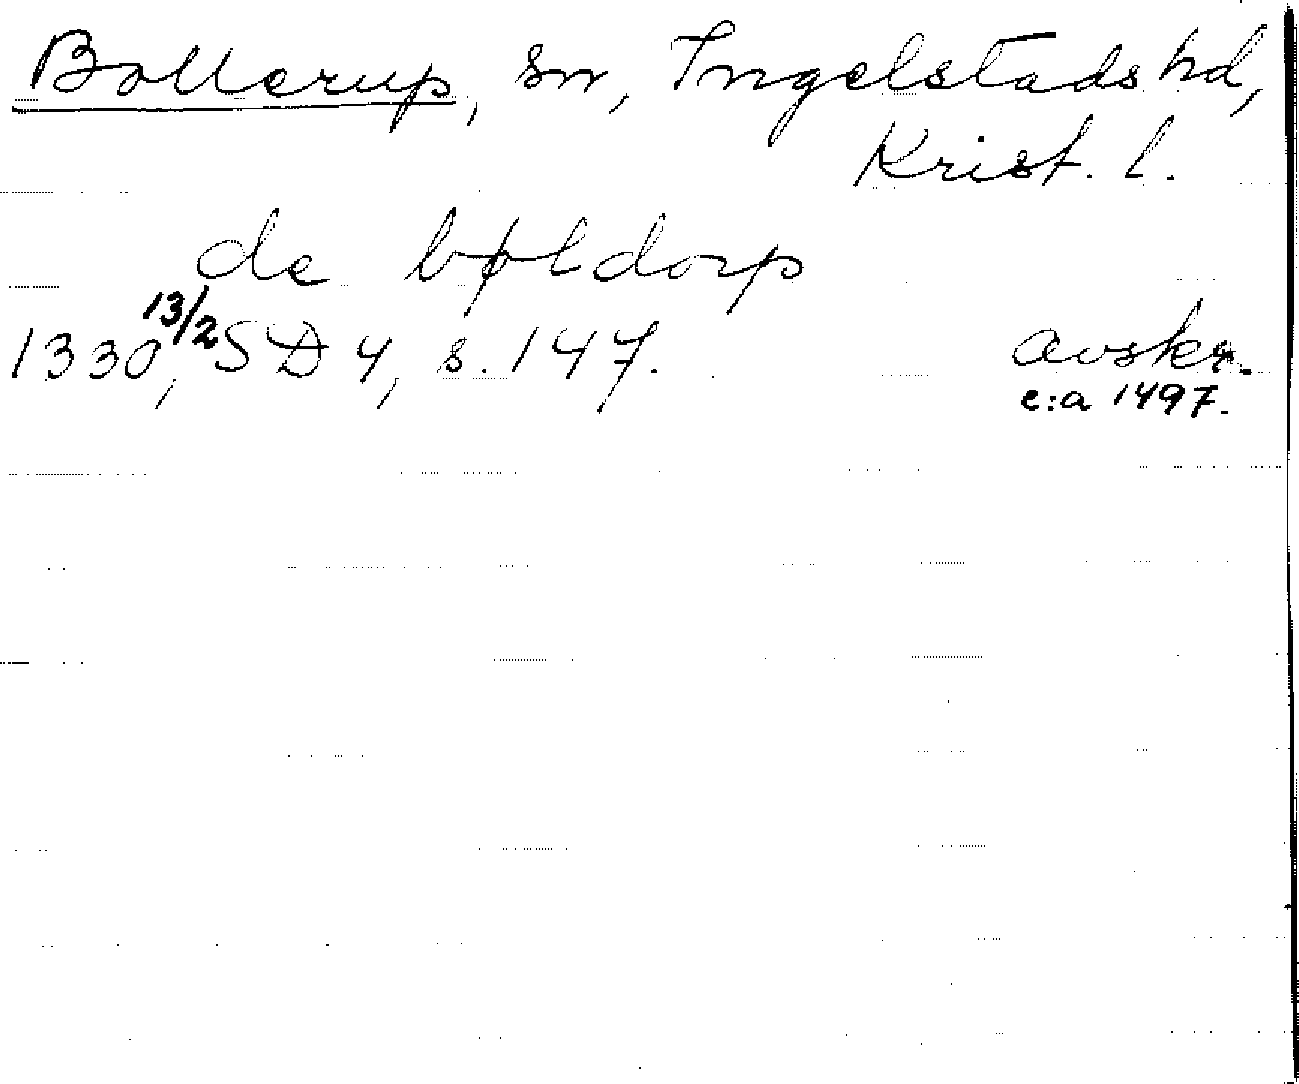 Bollerup, sn, Ingelstads hd,
Krist. l.
de bøldorp
1330 13/2, SD 4, s. 147. avskr.
c:a 1497.